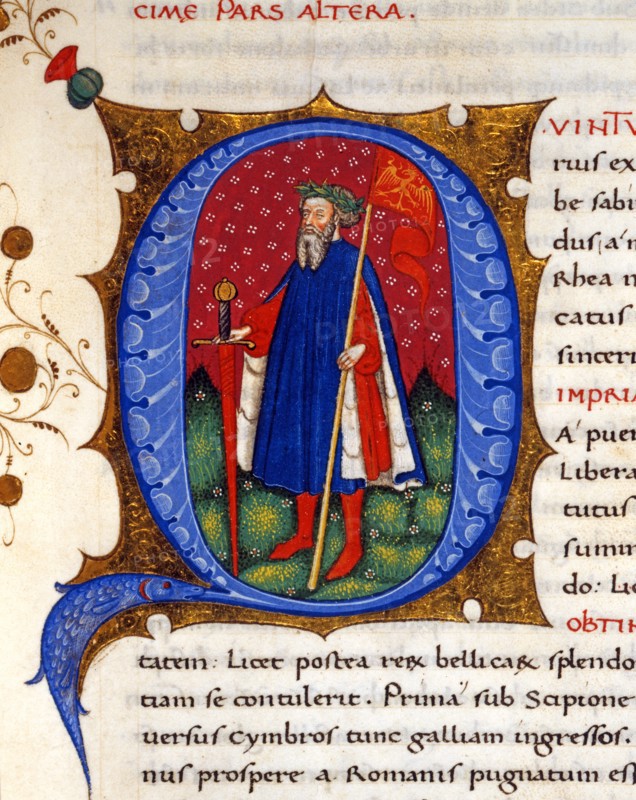 CIME PARS ALTERA.
VINTV
rius ex
be sabi
dus, a' n
Rhea
catus
sincer
IMPRIA
A' puer
Libera
tutus
summ
do: Lic
OBTIN
tatem: Licet postea rerum bellicarum splendo
tiam se contulerit. Prima' sub Scipione
versus Cymbros tunc galliam ingressos.
nus prospere a Romanis pugnatum ess